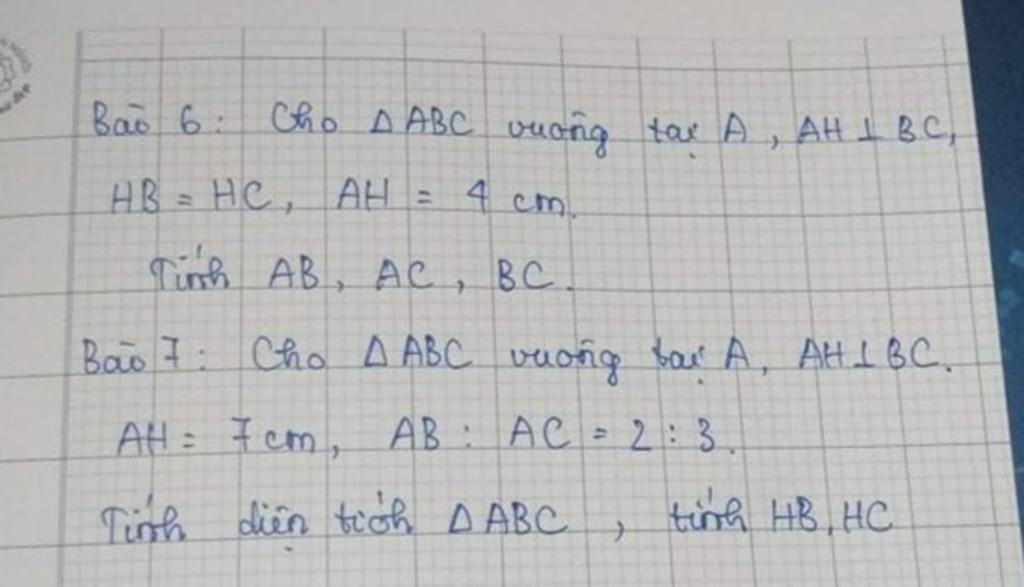 Bài 6: Cho ΔABC vuông tại A, AH ⊥ BC,
HB = HC, AH = 4 cm.
Tính AB, AC, BC.
Bài 7: Cho ΔABC vuông tại A, AH ⊥ BC.
AH = 7 cm, AB : AC = 2 : 3.
Tính diện tích ΔABC, tính HB, HC